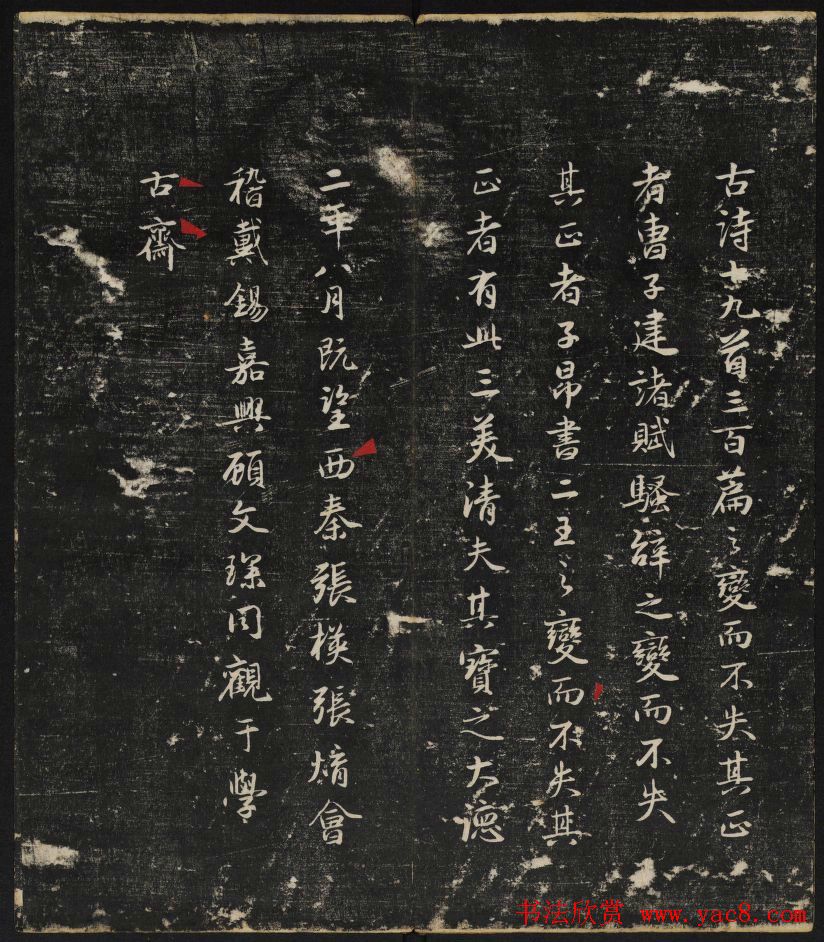 古诗十九首三百篇之變而不失其正
者曹子建諸賦騷辭之變而不失
其正者子昂書二王之變而不失其
正者有此三美清夫其寶之大德
二年八月既望西秦張模張焴會
稽戴錫嘉興顾文琛同觀于學
古齋
书法欣赏 www.yac8.com